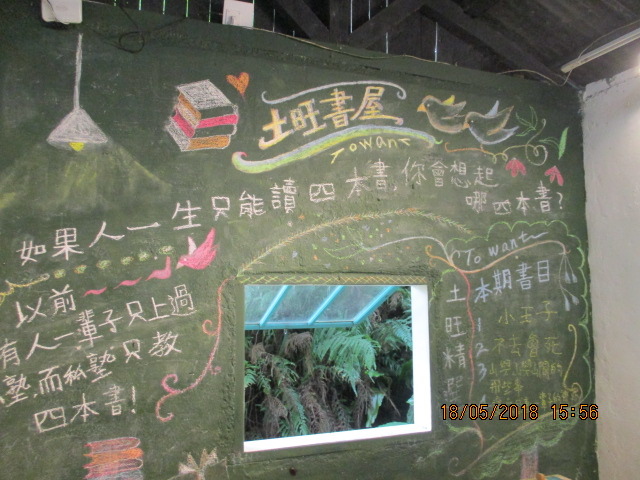 土旺書屋
Towant
如果人一生只能讀四本書,你會想起
哪四本書?
以前
有人一輩子只上過
塾,而私塾只教
四本書!
To want
土旺精
本期書目
1 小王子
2
3
18/05/2018 15:56